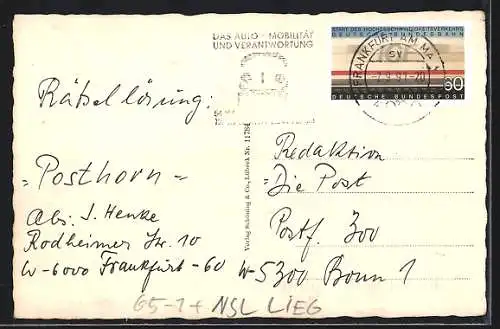 DAS AUTO - MOBILITÄT
UND VERANTWORTUNG
START DES HOCHGESCHWINDIGKEITSVERKEHRS
DEUTSCHE BUNDESBAHN
FRANKFURT AM MA
sv
60
DEUTSCHE BUNDESPOST
Rätsellösung:
"Posthorn"
Abs. J. Henke
Rodheimer Str. 10
W-6000 Frankfurt-60
Verlag Schöning & Co., Lübeck Nr. 11784
Redaktion
"Die Post
Postf. 300
W-5300 Bonn 1
65-1+ NSL LIEG